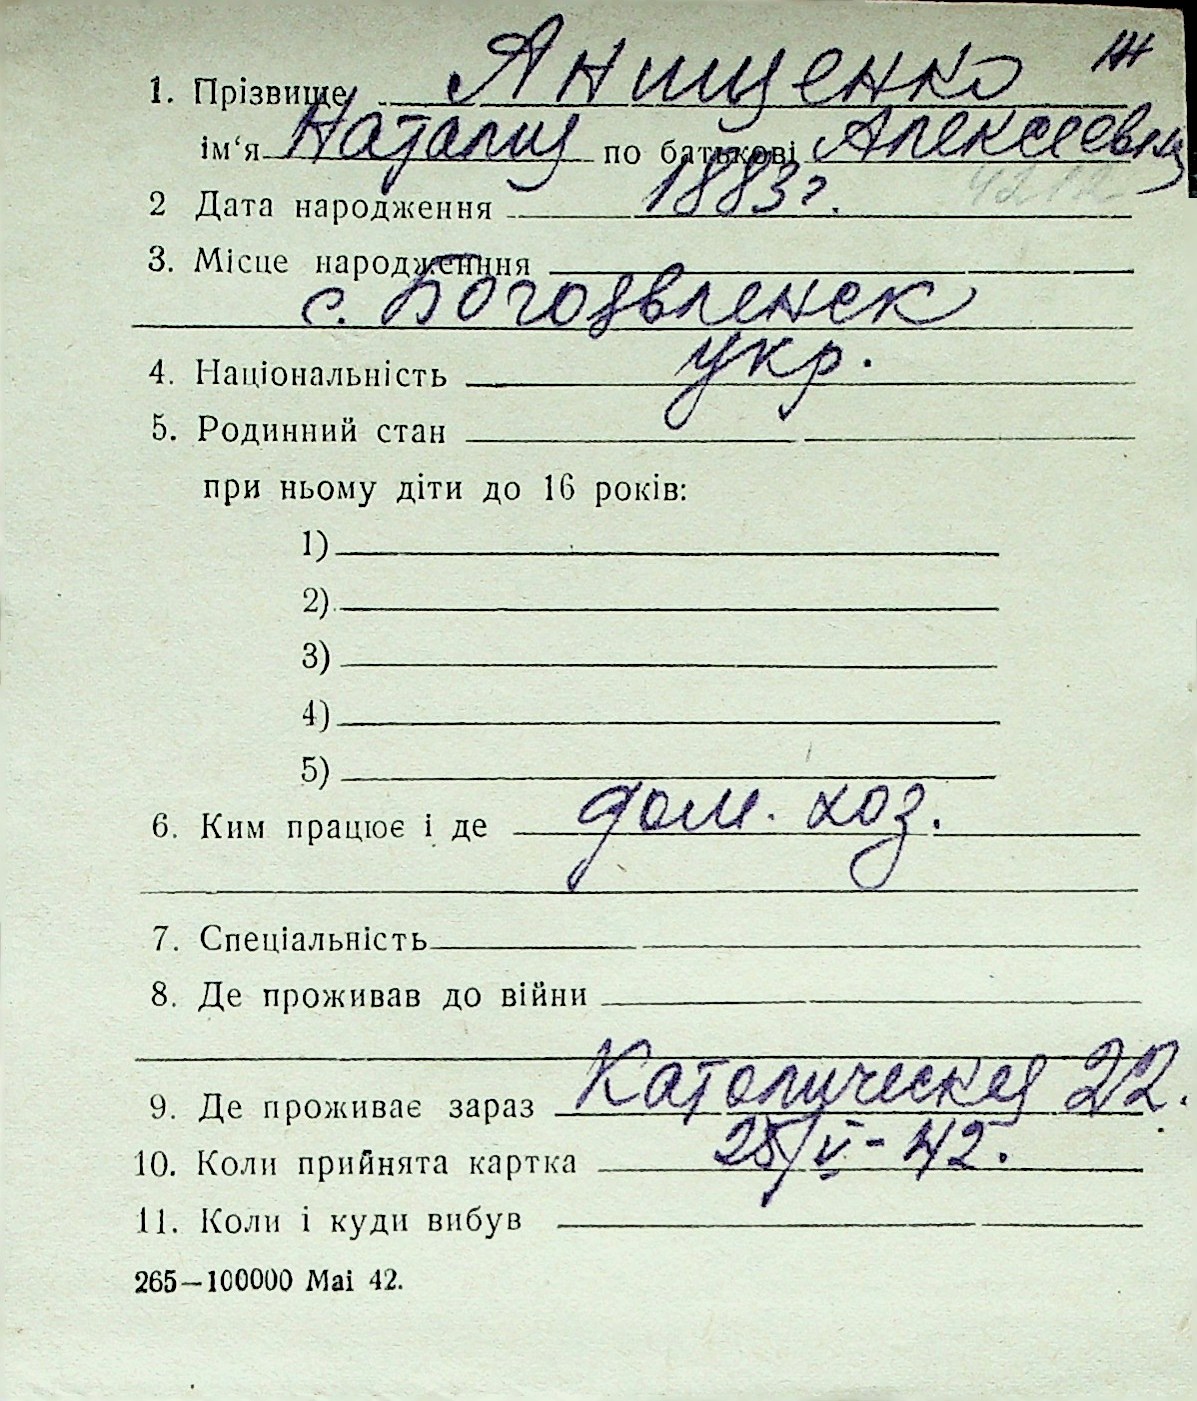 1. Прізвище Янищенко
ім'я Наталия по батькові Алексеевна
2 Дата народження 1883 г.
3. Місце народженння
с. Богоявленск
4. Національність укр.
5. Родинний стан
при ньому діти до 16 років:
1)
2)
3)
4)
5)
6. Ким працює і де дом. хоз.
7. Спеціальність
8. Де проживав до війни
9. Де проживає зараз Католическая 22.
10. Коли прийнята картка 25/V - 42.
11. Коли і куди вибув
265—100000 Маі 42.